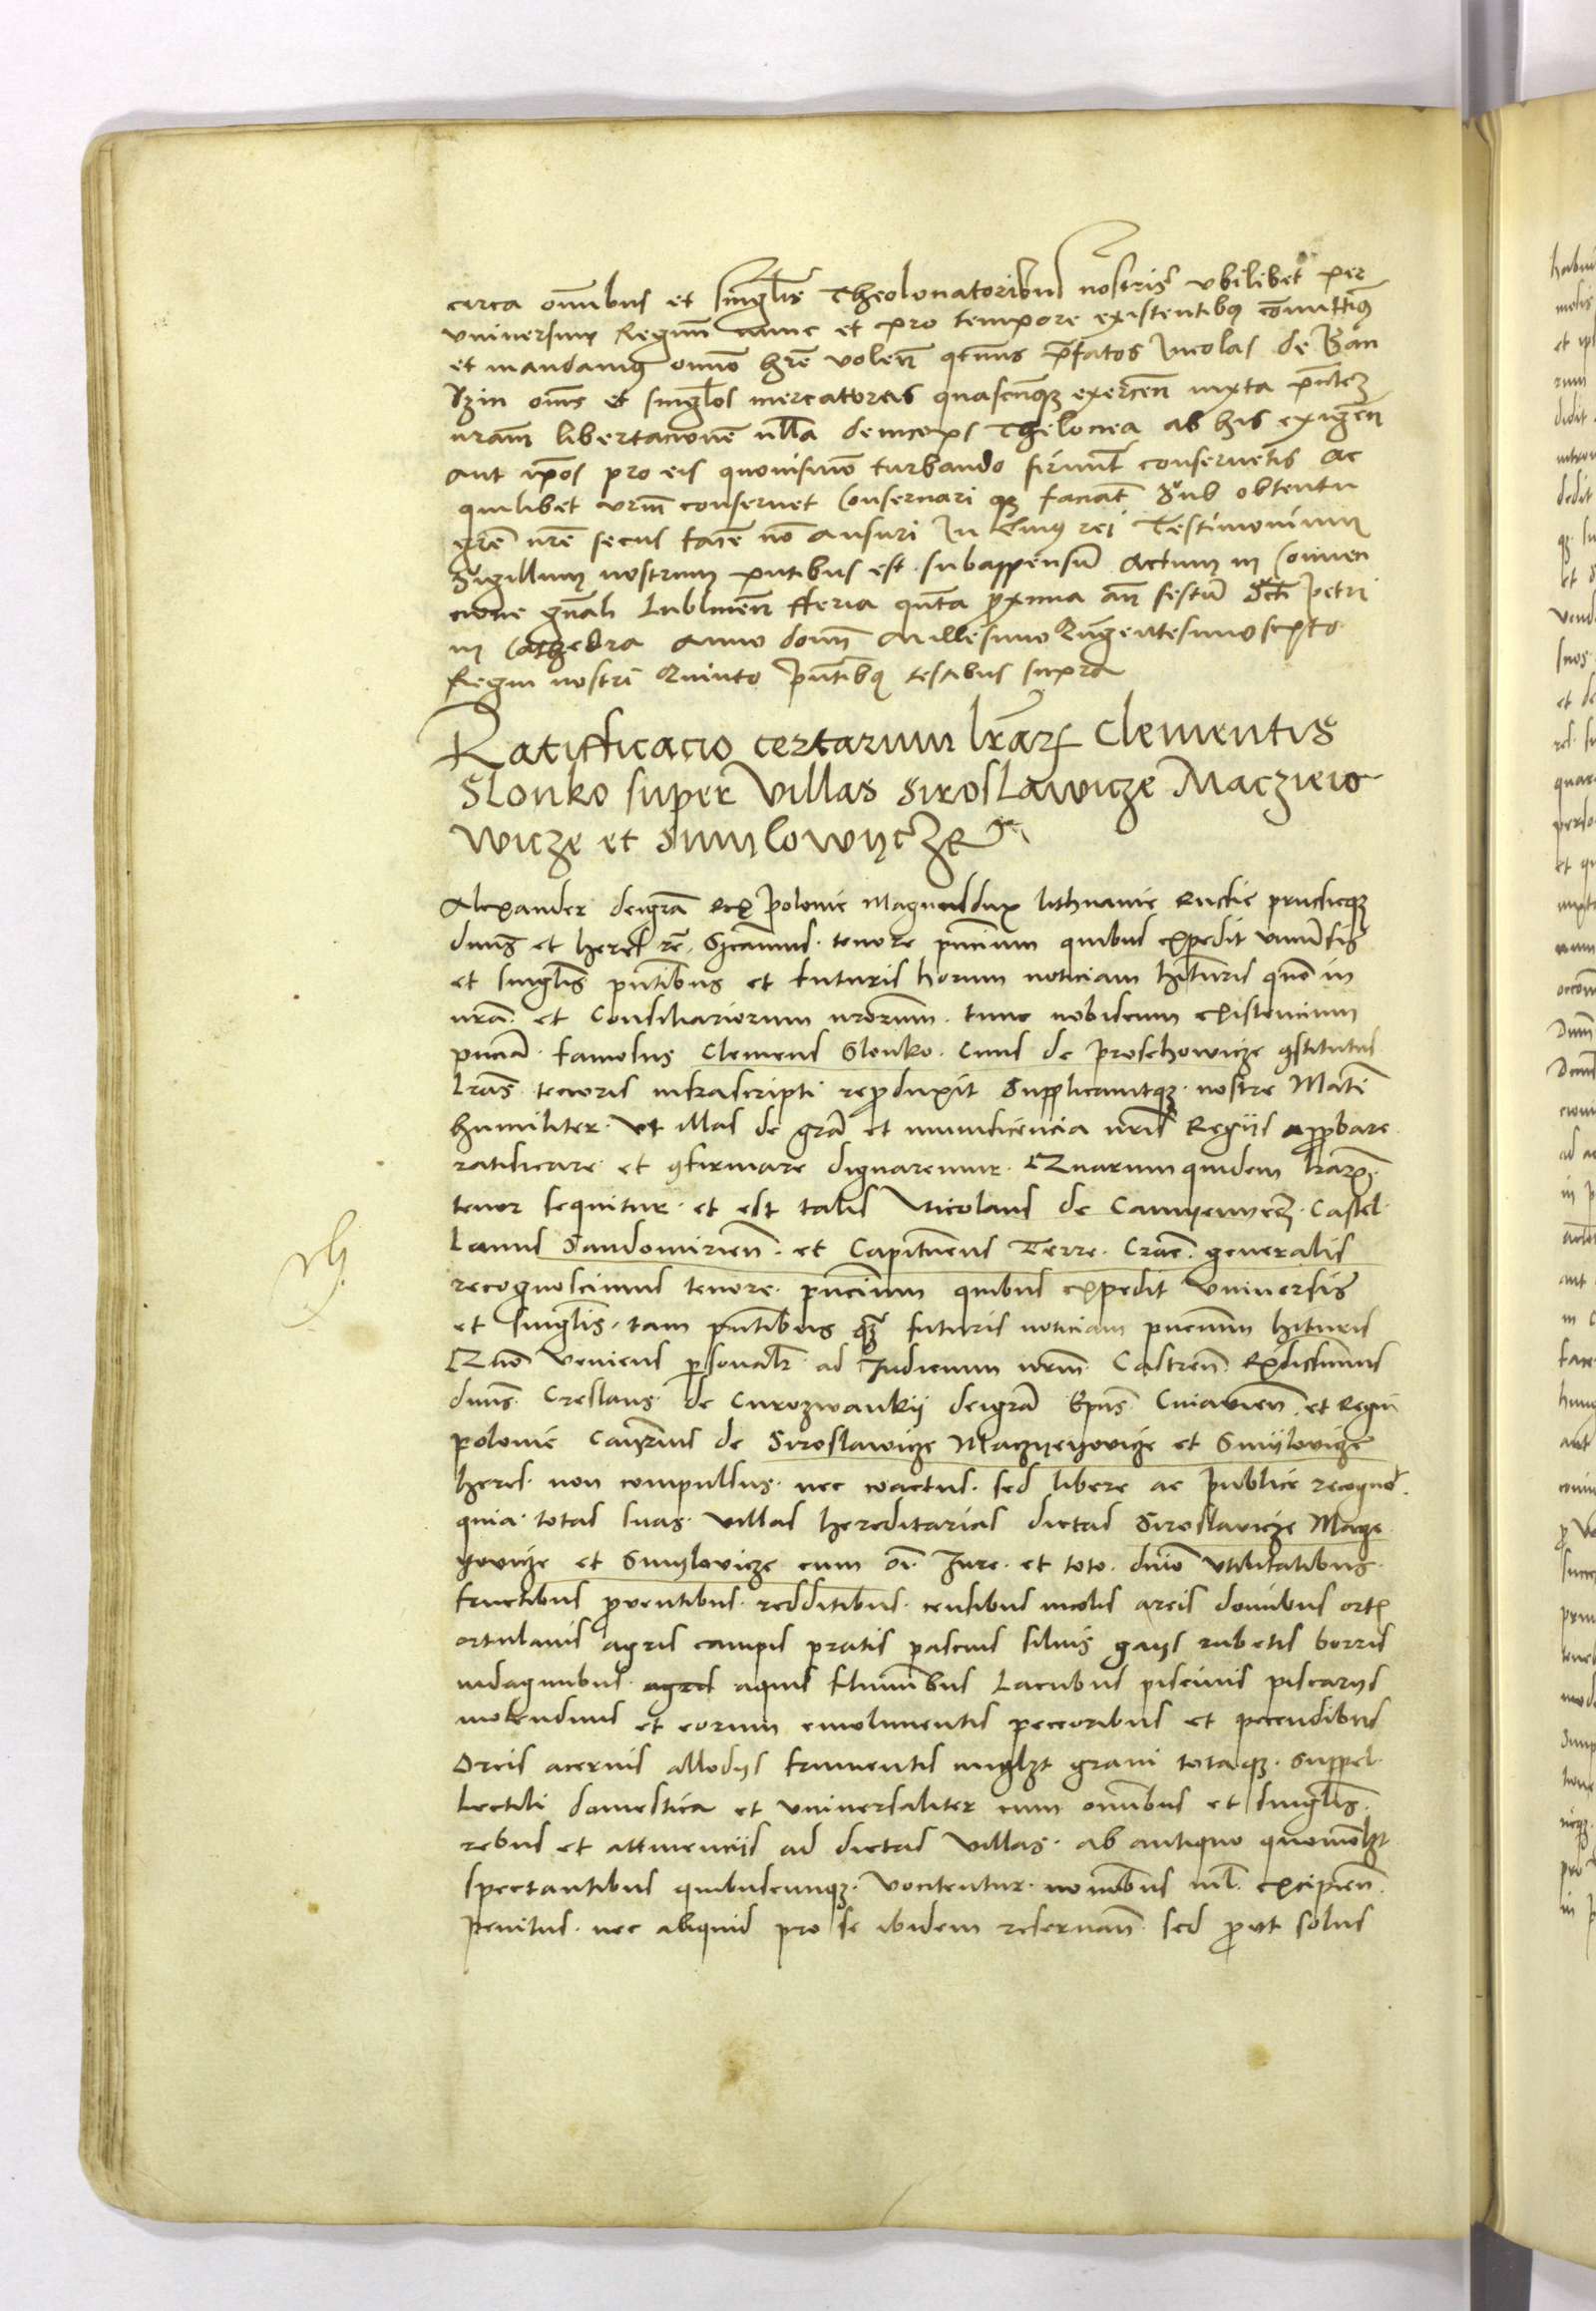 circa omnibus et singlis Theolonatoribus nostris vbilibet per
vniversum Regnum nunc et pro tempore existentibus comittimus
et mandamus omnino hre volen qtnus prefatos Incolas de Ban
dzin omnes et singlos mercatores quascunque exercen iuxta pntem
nram libertacionem nulla deinceps Thelonea ab his exigen
aut ipos pro eis quouismodo turbando sinunt conseruetis Ac
quilibet vrm conseruet Conseruari que faciat Sub obtentu
gre nre secus facere non ausuri In cuius rei Testimonium
Sigillum nostrum pntibus est subappensum Actum in Conuen
cione gnali Lublinen fferia quinta proxima an festum Scti Petri
in Cathedra Anno domini Millesimo Quingentesimo sexto
Regni nostri Quinto pntibus testibus supra
Ratifficacio certarum lrarum Clementis
Slonko super Villas Siroslawicze Maczieio
wicze et Smylowycze
Alexander dei gra Rex Polonie Magnusdux lithuanie Russie prussieque
dnus et heres etc. Significamus tenore pncium quibus expedit vniuersis
et singlis pntibus et futuris horum noticiam hituris quomodo in
nra et Consiliariorum nrorum tunc nobiscum existencium
pncia famosus Clemens Slonko Ciuis de Proschowicze constitutus
lras tenoris infrascripti reproduxit Supplicauitque nostre Mati
humiliter vt illas de gra et munificencia nris Regiis approbare
ratificare et confirmare dignaremur Quarum quidem lrarum
tenor sequitur et est talis Nicolaus de Camyenyecz Castel
lanus Sandomirien et Capitaneus Terre Crac generalis
recognoscimus tenore pncium quibus expedit Vniuersis
et singlis tam pntibus quam futuris noticiam pncium hituris
Quomodo veniens personalr ad Iudicium nrm Castren Rndissimus
dnus Creslaus de Curozwankij dei gra Epus Cuiauien et Regni
polonie Canrius de Siroslawicze Maczyeyovicze et Smijlovicze
heres non compulsus nec coactus sed libere ac publice recogno
quia totas suas villas hereditarias dictas Siroslauicze Macze
yovicze et Smylovicze cum oi Iure et toto dnio vtilitatibus
fructibus prouentibus redditibus censibus incolis areis domibus ort
ortulanis agris campis pratis pascuis siluis gays rubetis borris
indaginibus aquis fluminibus Lacubus piscinis piscariis
molendinis et eorum emolumentis peccoribus et pecudibus
Orreis aceruis allodijs frumentis grani totaque Suppel
lectili domestica et vniuersaliter cum omnibus et singlis
rebus et attinenciis ad dictas villas ab antiquo quomolzt
spectantibus quibuscunque vocitentur nominibus nil excipien
penitus nec aliquid pro se ibidem reseruan sed prout solus